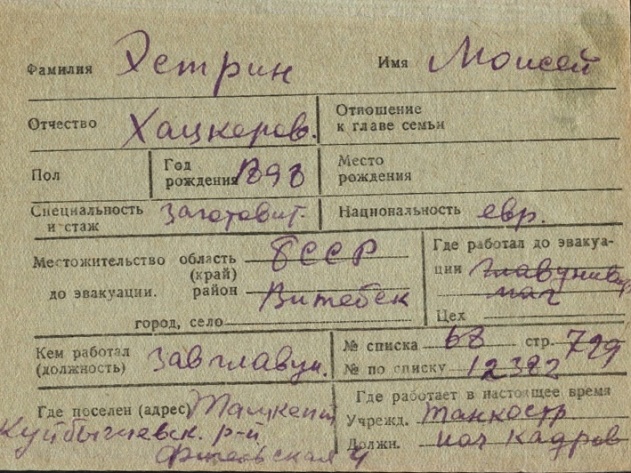 Фамилия Хетрин Имя Моисей
Отчество Хацкеров. Отношение к главе семьи
Пол Год рождения 1898 Место рождения
Специальность и стаж Заготовит. Национальность евр.
Местожительство область (край) БССР Где работал до эвакуа-
до эвакуации. район Витебск ции
город, село Цех
Кем работал (должность) Зав № списка 68 стр. 729
№ по списку 12382
Где поселен (адрес) Ташкент Где работает в настоящее время
Куйбышевск. р-й Учрежд.
4 Должн. нач кадров